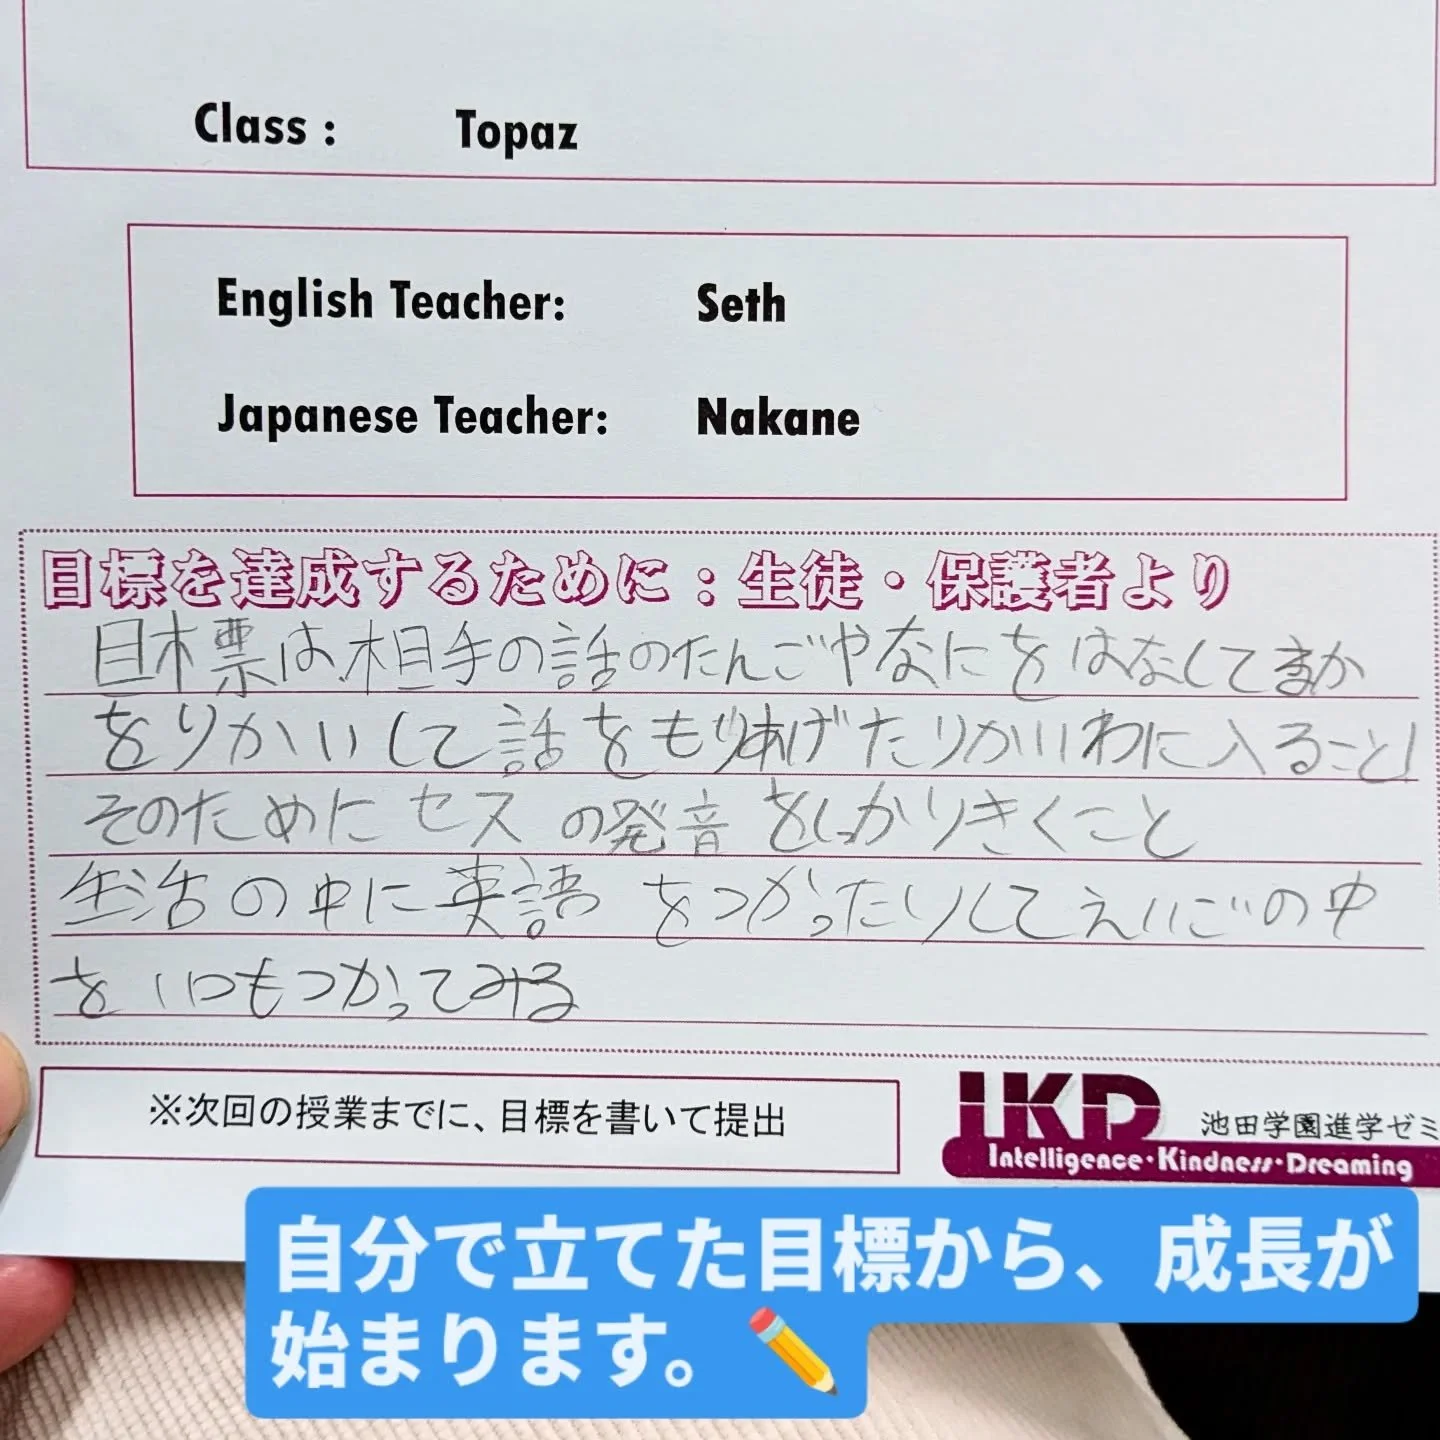 Class : Topaz
English Teacher: Seth
Japanese Teacher: Nakane
目標を達成するために：生徒・保護者より
目標は、相手の話のたんごやなにをはなしてまか
をりかいして話をもりあげたりかいわに入ること！
そのためにセスの発音をしっかりきくこと
生活の中に英語をつかったりしてえいごの中
をいつもつかってみる
※次回の授業までに、目標を書いて提出
IKD 池田学園進学ゼミ
Intelligence・Kindness・Dreaming
自分で立てた目標から、成長が
始まります。✏️